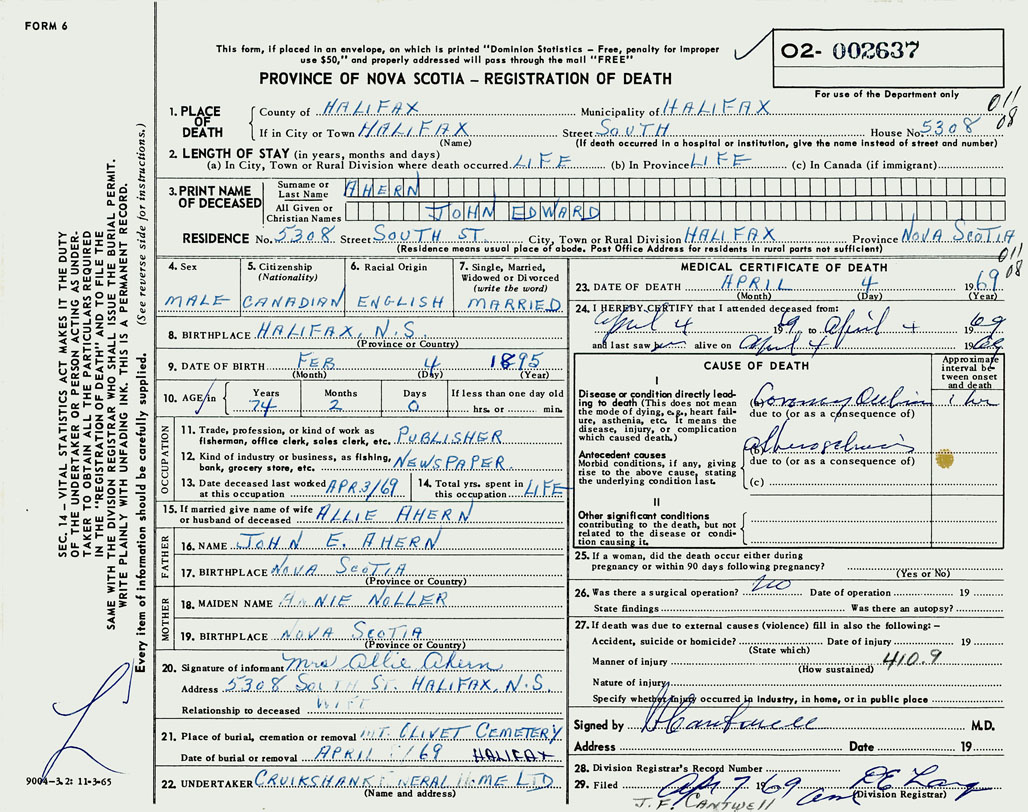 FORM 6
This form, if placed in an envelope, on which is printed "Dominion Statistics – Free, penalty for improper
use $50," and properly addressed will pass through the mail "FREE"
PROVINCE OF NOVA SCOTIA – REGISTRATION OF DEATH
02- 002637
For use of the Department only
011
08
1. PLACE OF DEATH
County of HALIFAX Municipality of HALIFAX
If in City or Town HALIFAX Street SOUTH House No. 5308
(Name) (If death occurred in a hospital or institution, give the name instead of street and number)
2. LENGTH OF STAY (in years, months and days)
(a) In City, Town or Rural Division where death occurred LIFE (b) In Province LIFE (c) In Canada (if immigrant)
3. PRINT NAME OF DECEASED
Surname or Last Name AHERN
All Given or Christian Names JOHN EDWARD
RESIDENCE No. 5308 Street SOUTH ST. City, Town or Rural Division HALIFAX Province NOVA SCOTIA
(Residence means usual place of abode. Post Office Address for residents in rural parts not sufficient)
011
08
4. Sex MALE
5. Citizenship (Nationality) CANADIAN
6. Racial Origin ENGLISH
7. Single, Married, Widowed or Divorced (write the word) MARRIED
8. BIRTHPLACE HALIFAX, N.S.
(Province or Country)
9. DATE OF BIRTH FEB 4 1895
(Month) (Day) (Year)
10. AGE in Years 74 Months 2 Days 0 If less than one day old hrs. or min.
OCCUPATION
11. Trade, profession, or kind of work as fisherman, office clerk, sales clerk, etc. PUBLISHER
12. Kind of industry or business, as fishing, bank, grocery store, etc. NEWSPAPER
13. Date deceased last worked at this occupation APR 3/69
14. Total yrs. spent in this occupation LIFE
15. If married give name of wife or husband of deceased ALLIE AHERN
FATHER
16. NAME JOHN E. AHERN
17. BIRTHPLACE NOVA SCOTIA
(Province or Country)
MOTHER
18. MAIDEN NAME ANNIE NOLLER
19. BIRTHPLACE NOVA SCOTIA
(Province or Country)
20. Signature of informant Mrs Allie Ahern
Address 5308 SOUTH ST. HALIFAX, N.S.
Relationship to deceased WIFE
21. Place of burial, cremation or removal MT. OLIVET CEMETERY
Date of burial or removal APRIL /69 HALIFAX
22. UNDERTAKER CRUIKSHANK FUNERAL HOME LTD
(Name and address)
MEDICAL CERTIFICATE OF DEATH
23. DATE OF DEATH APRIL 4 1969
(Month) (Day) (Year)
24. I HEREBY CERTIFY that I attended deceased from:
April 4 1969 to April 4 1969
and last saw him alive on April 4 1969
CAUSE OF DEATH
Approximate interval between onset and death
I
Disease or condition directly leading to death (This does not mean the mode of dying, e.g., heart failure, asthenia, etc. It means the disease, injury, or complication which caused death.)
Coronary 1 hr
due to (or as a consequence of)
Antecedent causes
Morbid conditions, if any, giving rise to the above cause, stating the underlying condition last.
(b)
due to (or as a consequence of)
(c)
II
Other significant conditions contributing to the death, but not related to the disease or condition causing it.
25. If a woman, did the death occur either during pregnancy or within 90 days following pregnancy?
(Yes or No)
26. Was there a surgical operation? no Date of operation 19
State findings Was there an autopsy?
27. If death was due to external causes (violence) fill in also the following: –
Accident, suicide or homicide? Date of injury 19
(State which)
Manner of injury 410.9
(How sustained)
Nature of injury
Specify whether injury occurred in Industry, in home, or in public place
Signed by M.D.
Address Date 19
28. Division Registrar's Record Number
29. Filed Apr 7 1969
(Division Registrar)
J. F. CANTWELL
SEC. 14 – VITAL STATISTICS ACT MAKES IT THE DUTY
OF THE UNDERTAKER OR PERSON ACTING AS UNDER-
TAKER TO OBTAIN ALL THE PARTICULARS REQUIRED
IN THE "REGISTRATION OF DEATH" AND TO FILE THE
SAME WITH THE DIVISION REGISTRAR WHO SHALL ISSUE THE BURIAL PERMIT.
WRITE PLAINLY WITH UNFADING INK. THIS IS A PERMANENT RECORD.
Every item of information should be carefully supplied. (See reverse side for instructions.)
9004-3.2: 11-3-65